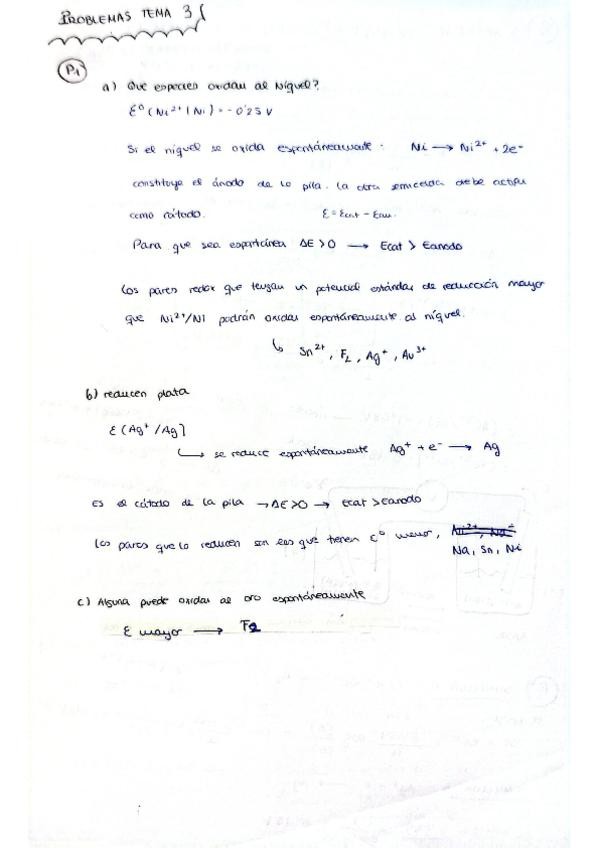 PROBLEMAS TEMA 3
P.1
a) Que especies oxidan al Níquel?
ε⁰ (Ni²⁺ | Ni) = -0'25 V
Si el níquel se oxida espontáneamente · Ni → Ni²⁺ + 2e⁻
constituye el ánodo de la pila. La otra semicelda debe actuar
como cátodo. ε = εcat - εan.
Para que sea espontánea ΔE > 0 → Ecat > Eanodo
Los pares redox que tengan un potencial estándar de reducción mayor
que Ni²⁺/Ni podrán oxidar espontáneamente al níquel.
↳ Sn²⁺, F₂, Ag⁺, Au³⁺
b) reducen plata
ε (Ag⁺/Ag]
↳ se reduce espontáneamente Ag⁺ + e⁻ → Ag
Es el cátodo de la pila → ΔE>0 → Ecat > Eanodo
Los pares que lo reducen son los que tienen ε⁰ menor, Ni²⁺, Na
Na, Sn, Ni
c) Alguna puede oxidar al oro espontáneamente
ε mayor → F2